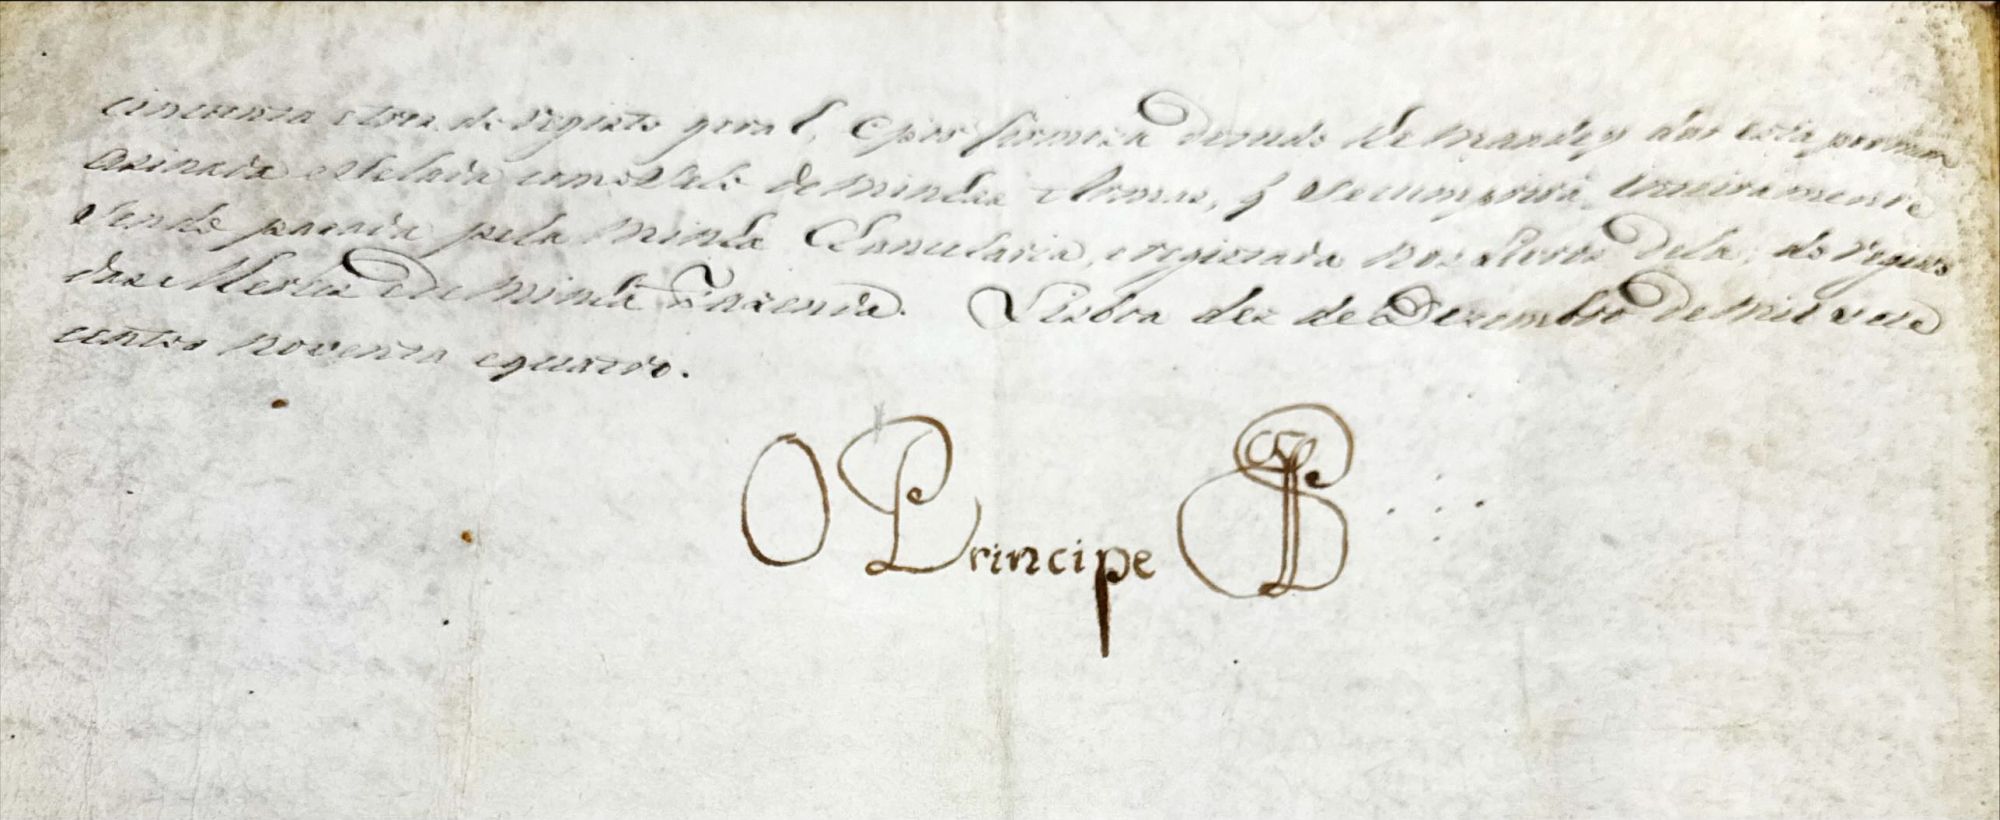 cincoenta e tres do registo geral, E por firmeza de tudo lhe mandey dar esta por mim
asinada e selada com o Selo de minhas Armas, q̃ se cumprirá inteiramente
Sendo pasada pela minha Chancelaria, e registada nos Livros dela, e do registo
das Merces de minha Fazenda. Lisboa dez de Dezembro de mil e sete
centos noventa e quatro.
O Principe